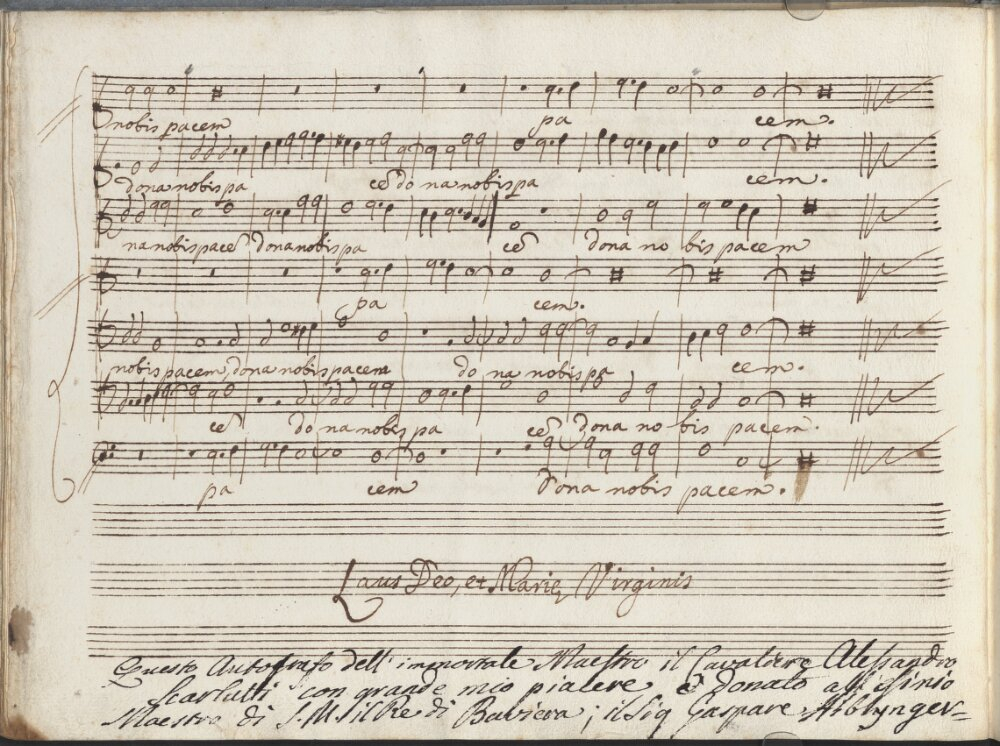 nobis pacem pa cem.
dona nobis pa cē do na nobis pa cem.
na nobis pacē dona nobis pa cē dona no bis pacem
pa cem.
nobis pacem, dona nobis pacem do na nobis pa cem.
cē do na nobis pa cē dona no bis pacem.
pa cem Dona nobis pacem.
Laus Deo, et Marie Virginis
Questo Autografo dell' immortale Maestro il Cavaliere Alessandro
Scarlatti con grande mio piacere è donato
Maestro di S. M. il Re di Baviera; il Sig Gaspare Aiblynger=